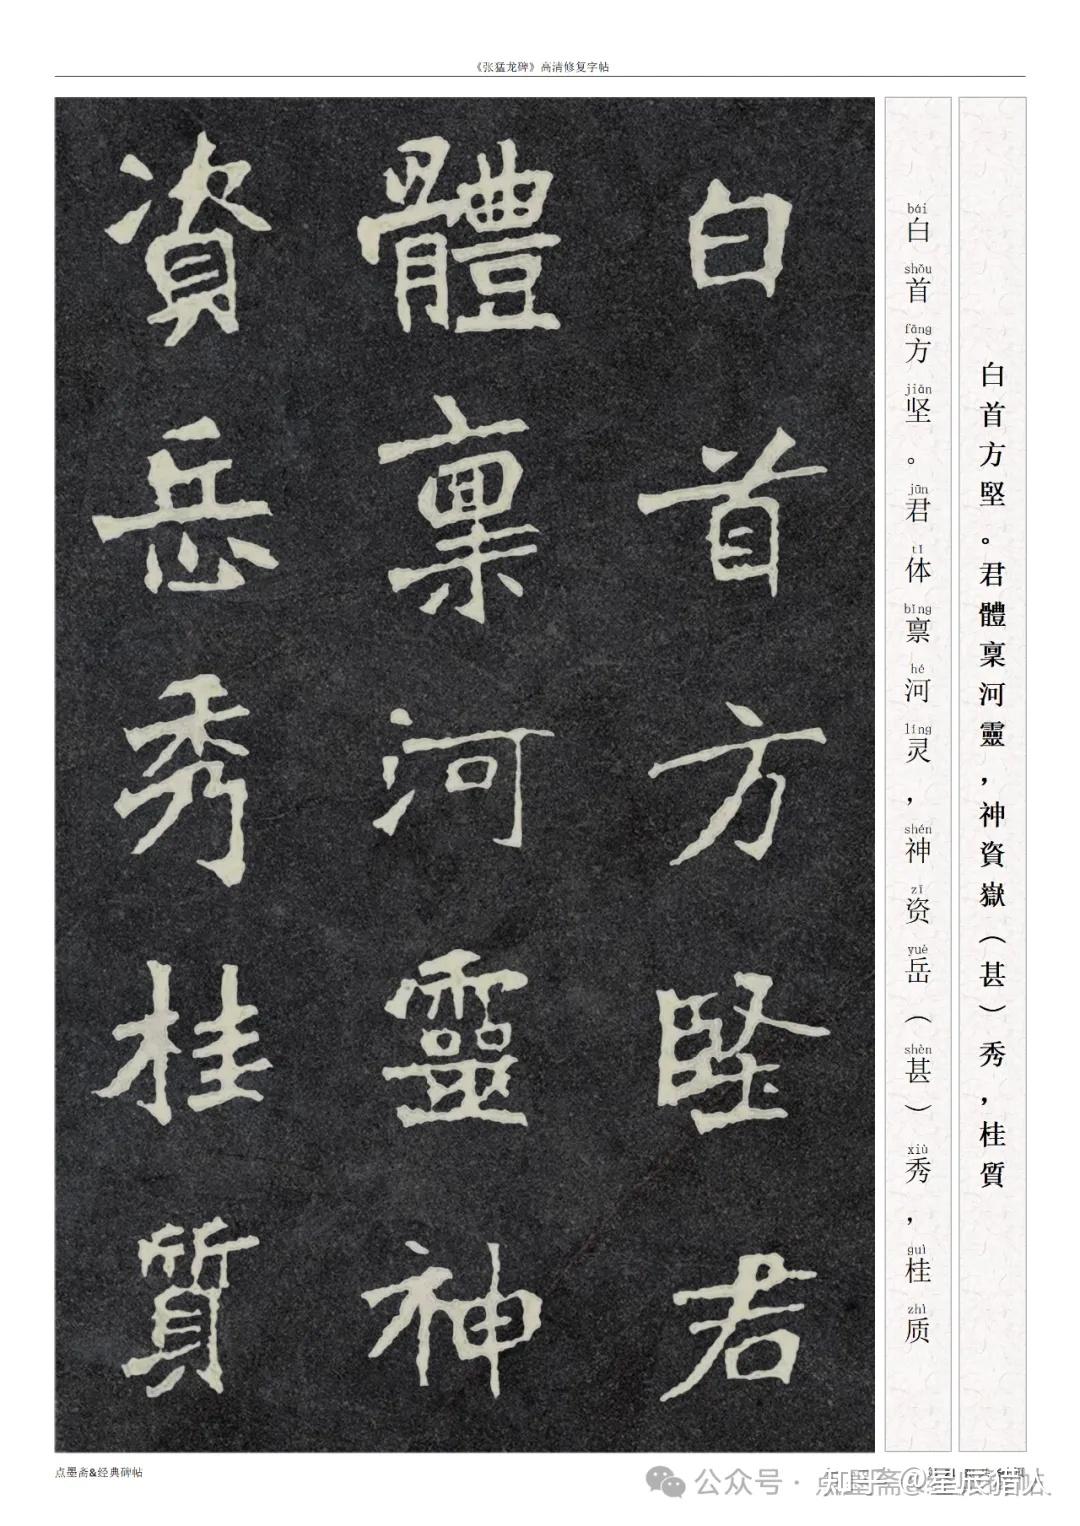 《张猛龙碑》高清修复字帖
白首方堅。君體稟河靈，神資嶽（甚）秀，桂質
bái shǒu fāng jiān jūn tǐ bǐng hé líng shén zī yuè shèn xiù guì zhì
白首方坚。君体禀河灵，神资岳（甚）秀，桂质
白首方堅君
體稟河靈神
資岳秀桂質
点墨斋&经典碑帖
公众号 · 点墨斋
知乎 @星辰猎人